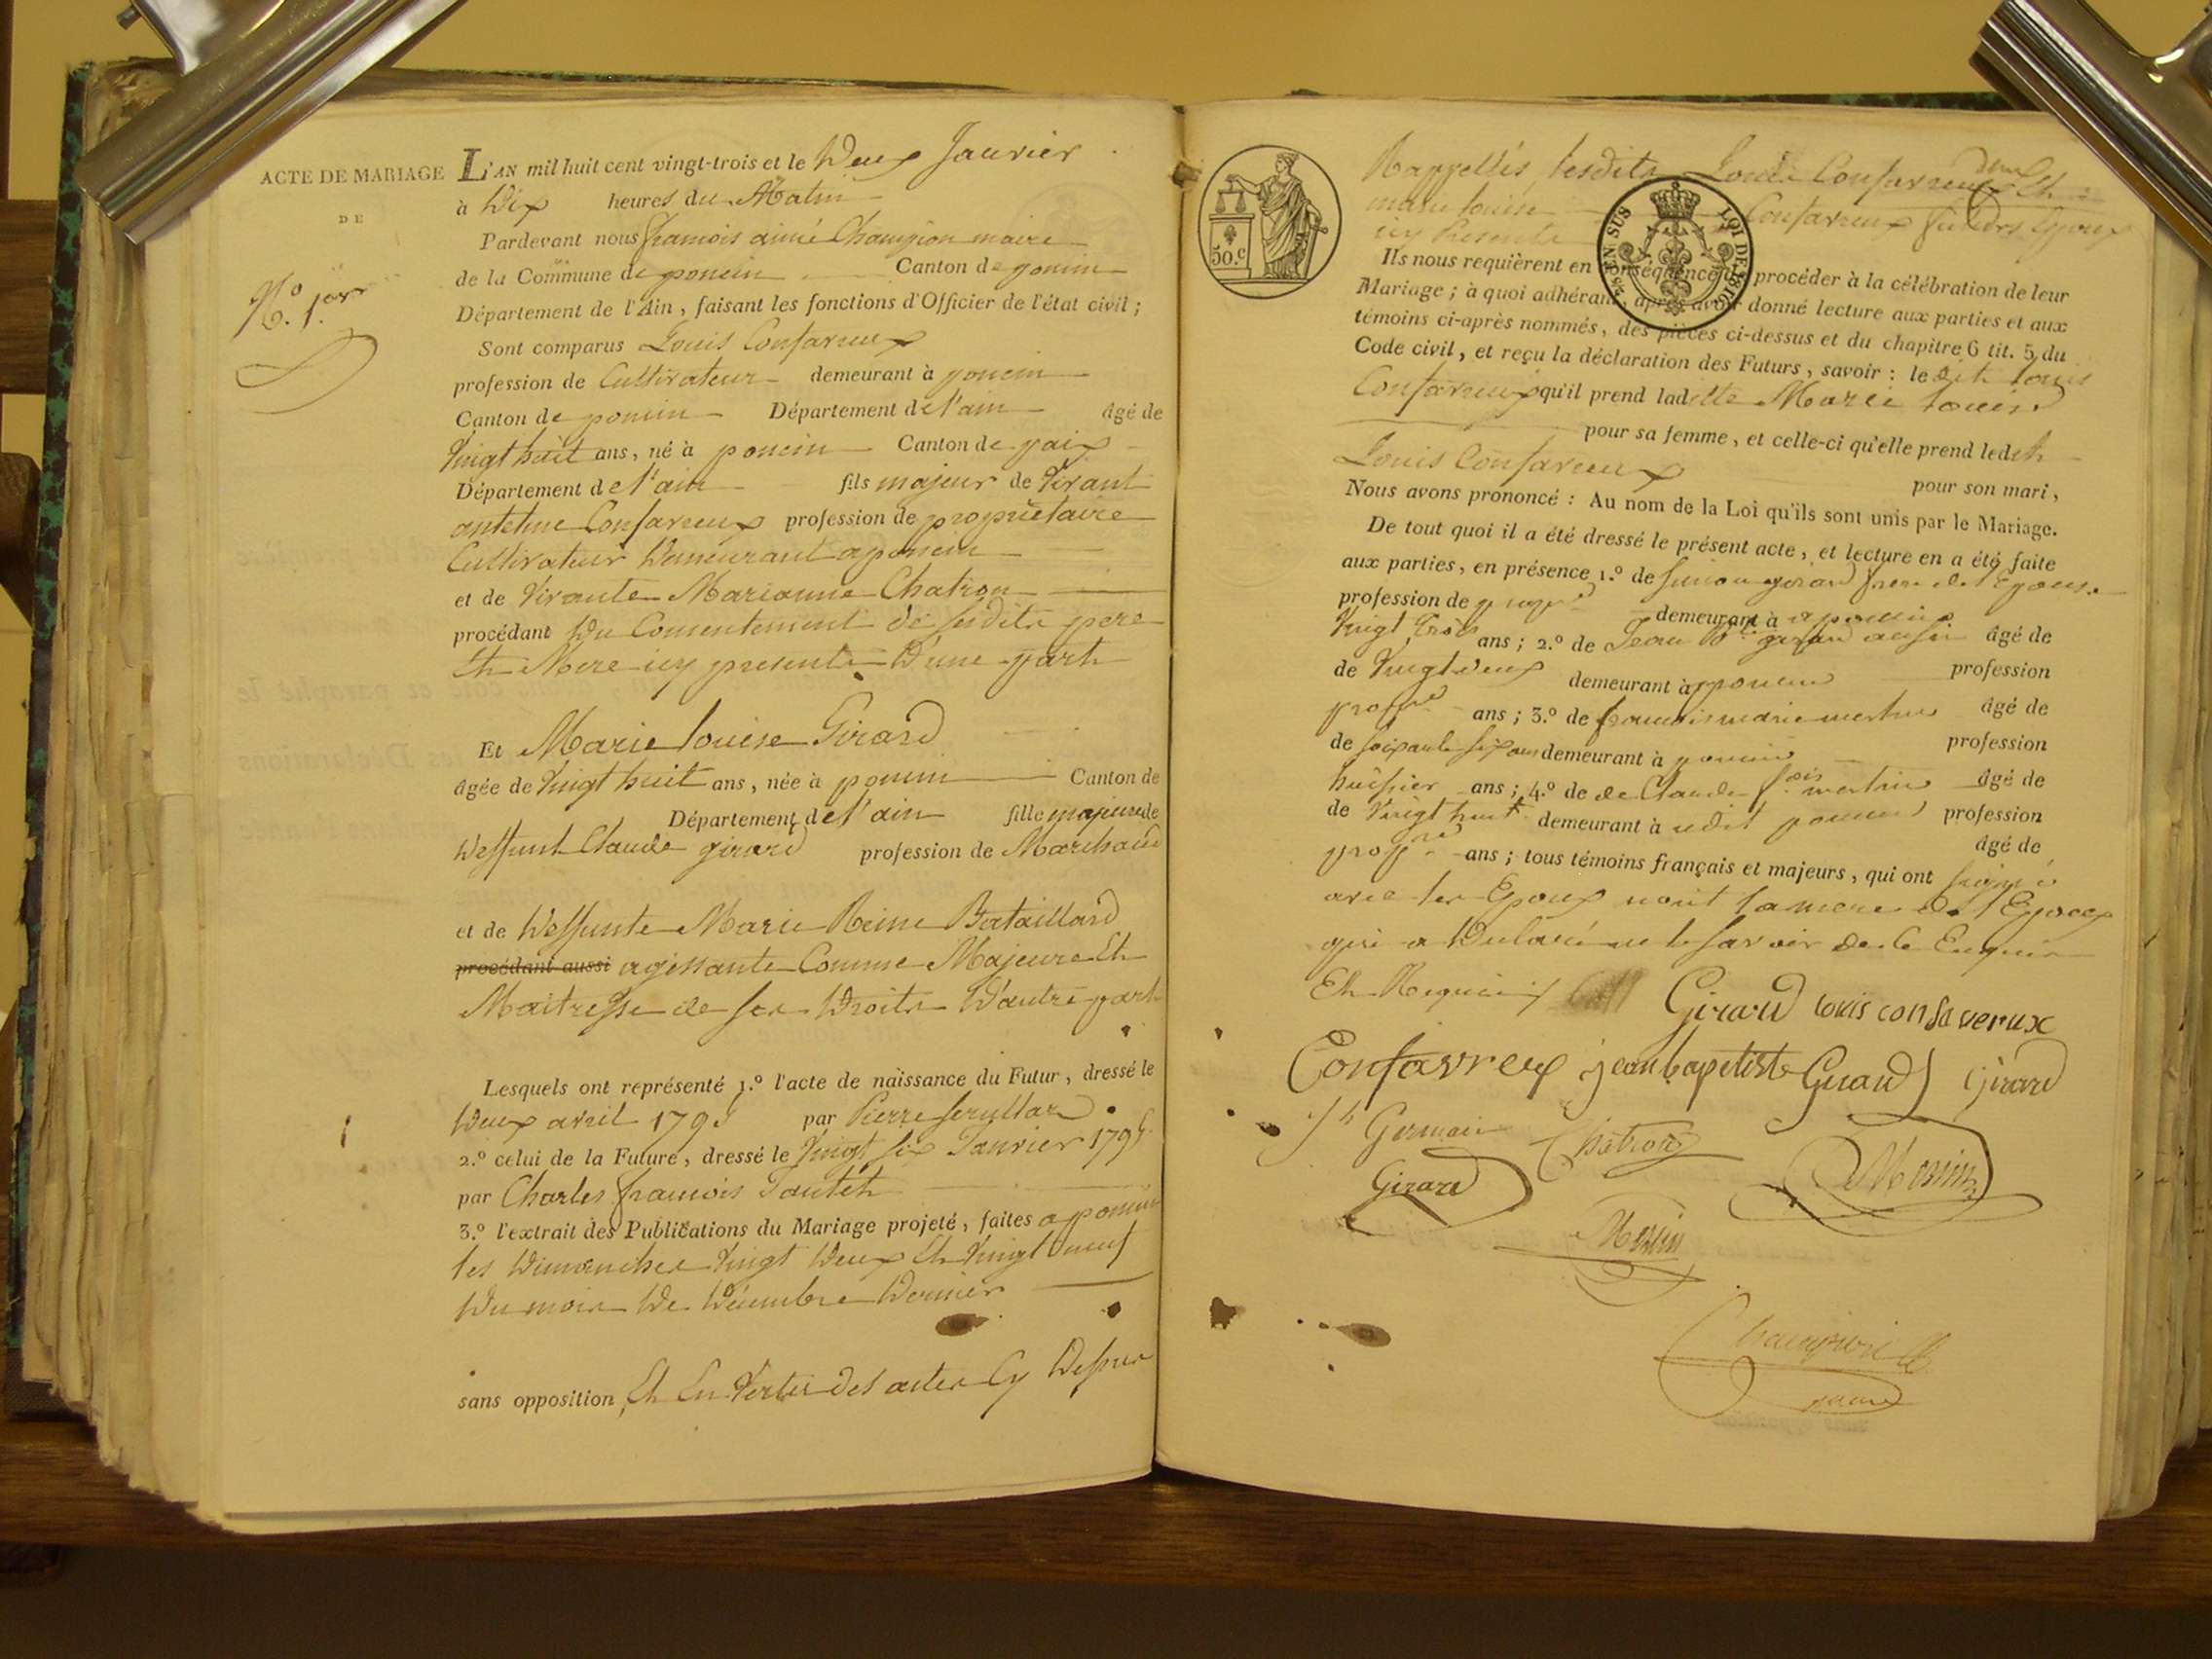 ACTE DE MARIAGE
DE
N.º 1.er
L'AN mil huit cent vingt-trois et le Deux Janvier
à Dix heures du Matin
Pardevant nous francois aimé Champion maire
de la Commune de poncin Canton de poncin
Département de l'Ain, faisant les fonctions d'Officier de l'état civil;
Sont comparus Louis Confavreux
profession de Cultivateur demeurant à poncin
Canton de poncin Département de l'ain âgé de
Vingt huit ans, né à poncin Canton de paix
Département de l'ain fils majeur de Vivant
antelme Confavreux profession de propriétaire
Cultivateur Demeurant a poncin
et de Vivante Marianne Chatron
procédant Du Consentement de sesdits pere
Et Mere icy presents D'une part
Et Marie Louise Girard
âgée de Vingt huit ans, née à poncin Canton de
Département de l'ain fille majeure de
Deffunt Claude girard profession de Marchand
et de Deffunte Marie Reine Bataillard
procédant aussi agissante Comme Majeure Et
Maitresse de ses Droits D'autre part
Lesquels ont représenté 1.º l'acte de naissance du Futur, dressé le
Deux avril 1795 par Pierre
2.º celui de la Future, dressé le Vingt six Janvier 1795
par Charles francois Tantet
3.º l'extrait des Publications du Mariage projeté, faites a poncin
les Dimanches Vingt Deux Et Vingt neuf
Du mois De Décembre Dernier
sans opposition, Et En Vertu des actes Cy Dessus
50.c
Rappellés, lesdits Louis Confavreux Et
marie louise Confavreux futurs Epoux
icy Presents
EN SUS LOI DE 1816
Ils nous requièrent en conséquence de procéder à la célébration de leur
Mariage; à quoi adhérant, après avoir donné lecture aux parties et aux
témoins ci-après nommés, des pièces ci-dessus et du chapitre 6 tit. 5 du
Code civil, et reçu la déclaration des Futurs, savoir: le dit louis
Confavreux qu'il prend ladite Marie louise
pour sa femme, et celle-ci qu'elle prend ledit
Louis Confavreux pour son mari,
Nous avons prononcé: Au nom de la Loi qu'ils sont unis par le Mariage.
De tout quoi il a été dressé le présent acte, et lecture en a été faite
aux parties, en présence 1.º de girard frere de l'Epouse
profession de demeurant à a poncin
Vingt trois ans; 2.º de Jean Bte girard aussi âgé de
de Vingt deux demeurant à poncin profession
propre ans; 3.º de francois marie âgé de
de soixante six ans demeurant à poncin profession
huissier ans; 4.º de de Claude âgé de
de Vingt huit demeurant à udit poncin profession
propre ans; tous témoins français et majeurs, qui ont signé âgé de
avec les Epoux non la mere de l'Epoux
qui a Déclaré ne le savoir de ce Enquise
Et Requise
Girard louis confaverux
Confavreux jean baptiste Girard Girard
Germain Chatron
Girard Monin
Monin
Champion
maire